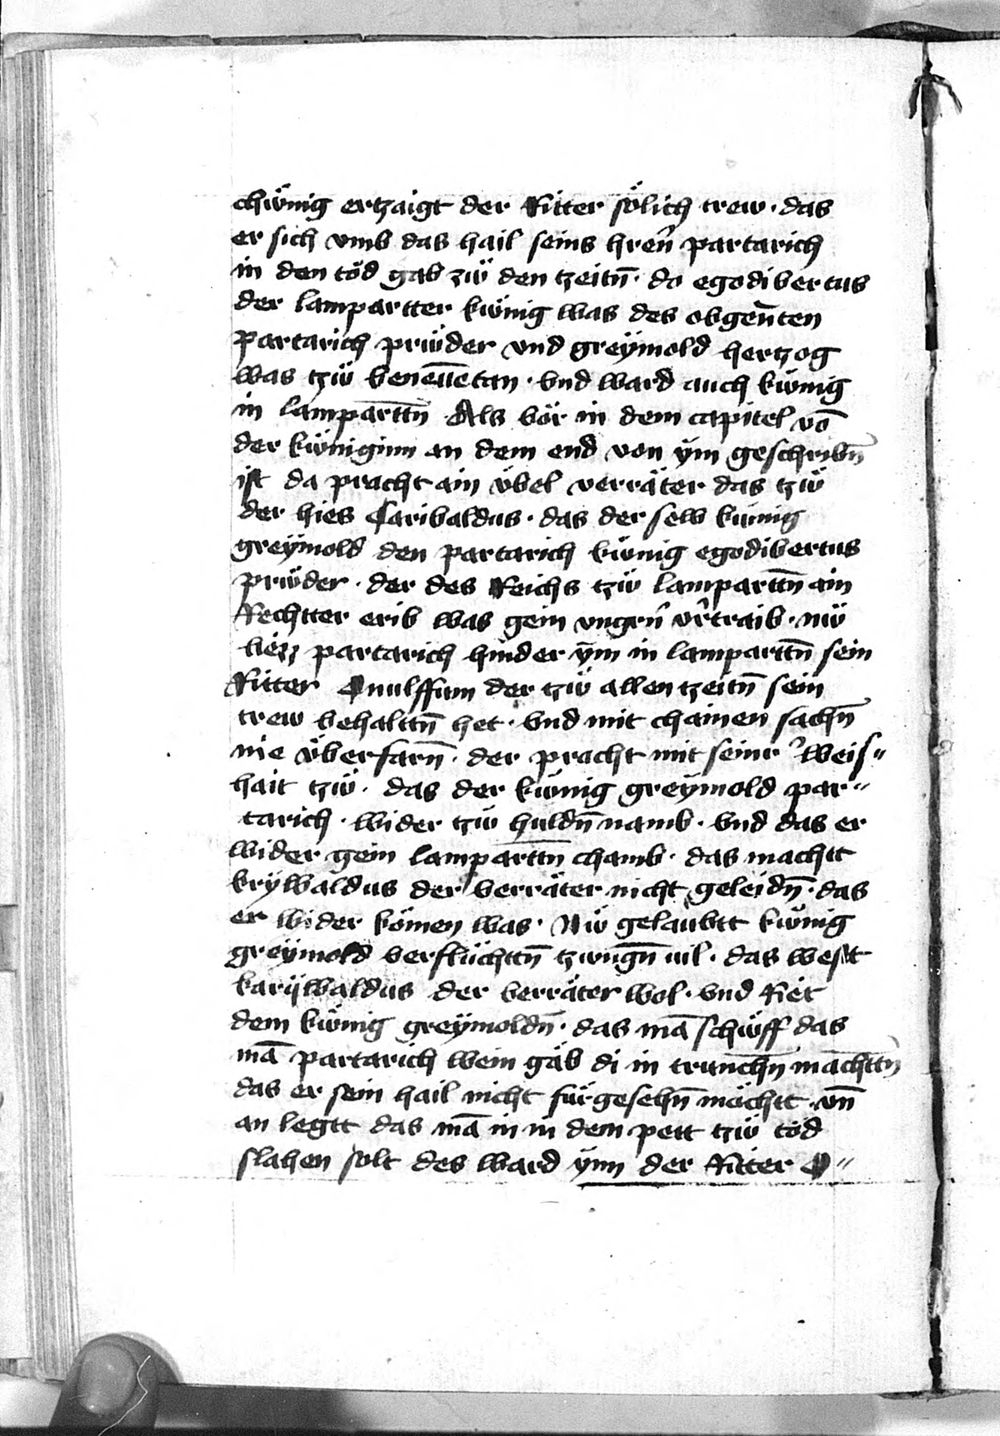 chünig ertzaigt der Ritter sölich trew · das
er sich vmb das hail seins hren̄ partarich
in den töd gab zw̎ den tzeitn̄ · do egodibertus
der lampartter kw̎nig was des obgen̄ten
partarich prw̎der vnd greÿmold hertzog
was tzw̎ beneūetan · vnd ward auch kw̎nig
in lampartn̄ Als vör in dem capitel vō
der kw̎niginn an dem end von ÿm geschribn̄
ist da pracht ain vbel verräter das tzw̎
der hies Garibaldus · das der selb künig
greÿmold den partarich kw̎nig egodibertus
prw̎der · der des Reichs tzw̎ lampartn̄ ain
Rechtter erib was gein vngrn̄ vertraib · nw̎
liezz partarich hinder ÿm in lamparttn̄ sein
Ritter Onulffum der tzw̎ allen tzeitn̄ sein
trew behalttn̄ het · vnd mit chainen sachn̄
nie v̎berfarn̄ · der pracht mit seiner weis〃
hait tzw̎ · das der kw̎nig greÿmold par〃
tarich · wider tzw̎ huldn̄ namb · vnd das er
wider gein lampartn̄ chamb · das machtt
krÿwaldus der verräter nicht geleidn̄ · das
er wider kömen was · Nw̎ gelaubtt kw̎nig
greÿmold verflüchttn̄ tzwngn̄ vil · das west
karÿwaldus der verräter wol · vnd Riet
dem kw̎nig greÿmoldn̄ · das mā schw̎ff das
mā partarich wein gäb di in trunchn̄ machttn̄
das er sein hail nicht fürgesehn̄ möchtt · vn̄
an legtt das mā in in dem pett tzw̎ töd
slahen solt des ward ÿnn der Ritter O〃